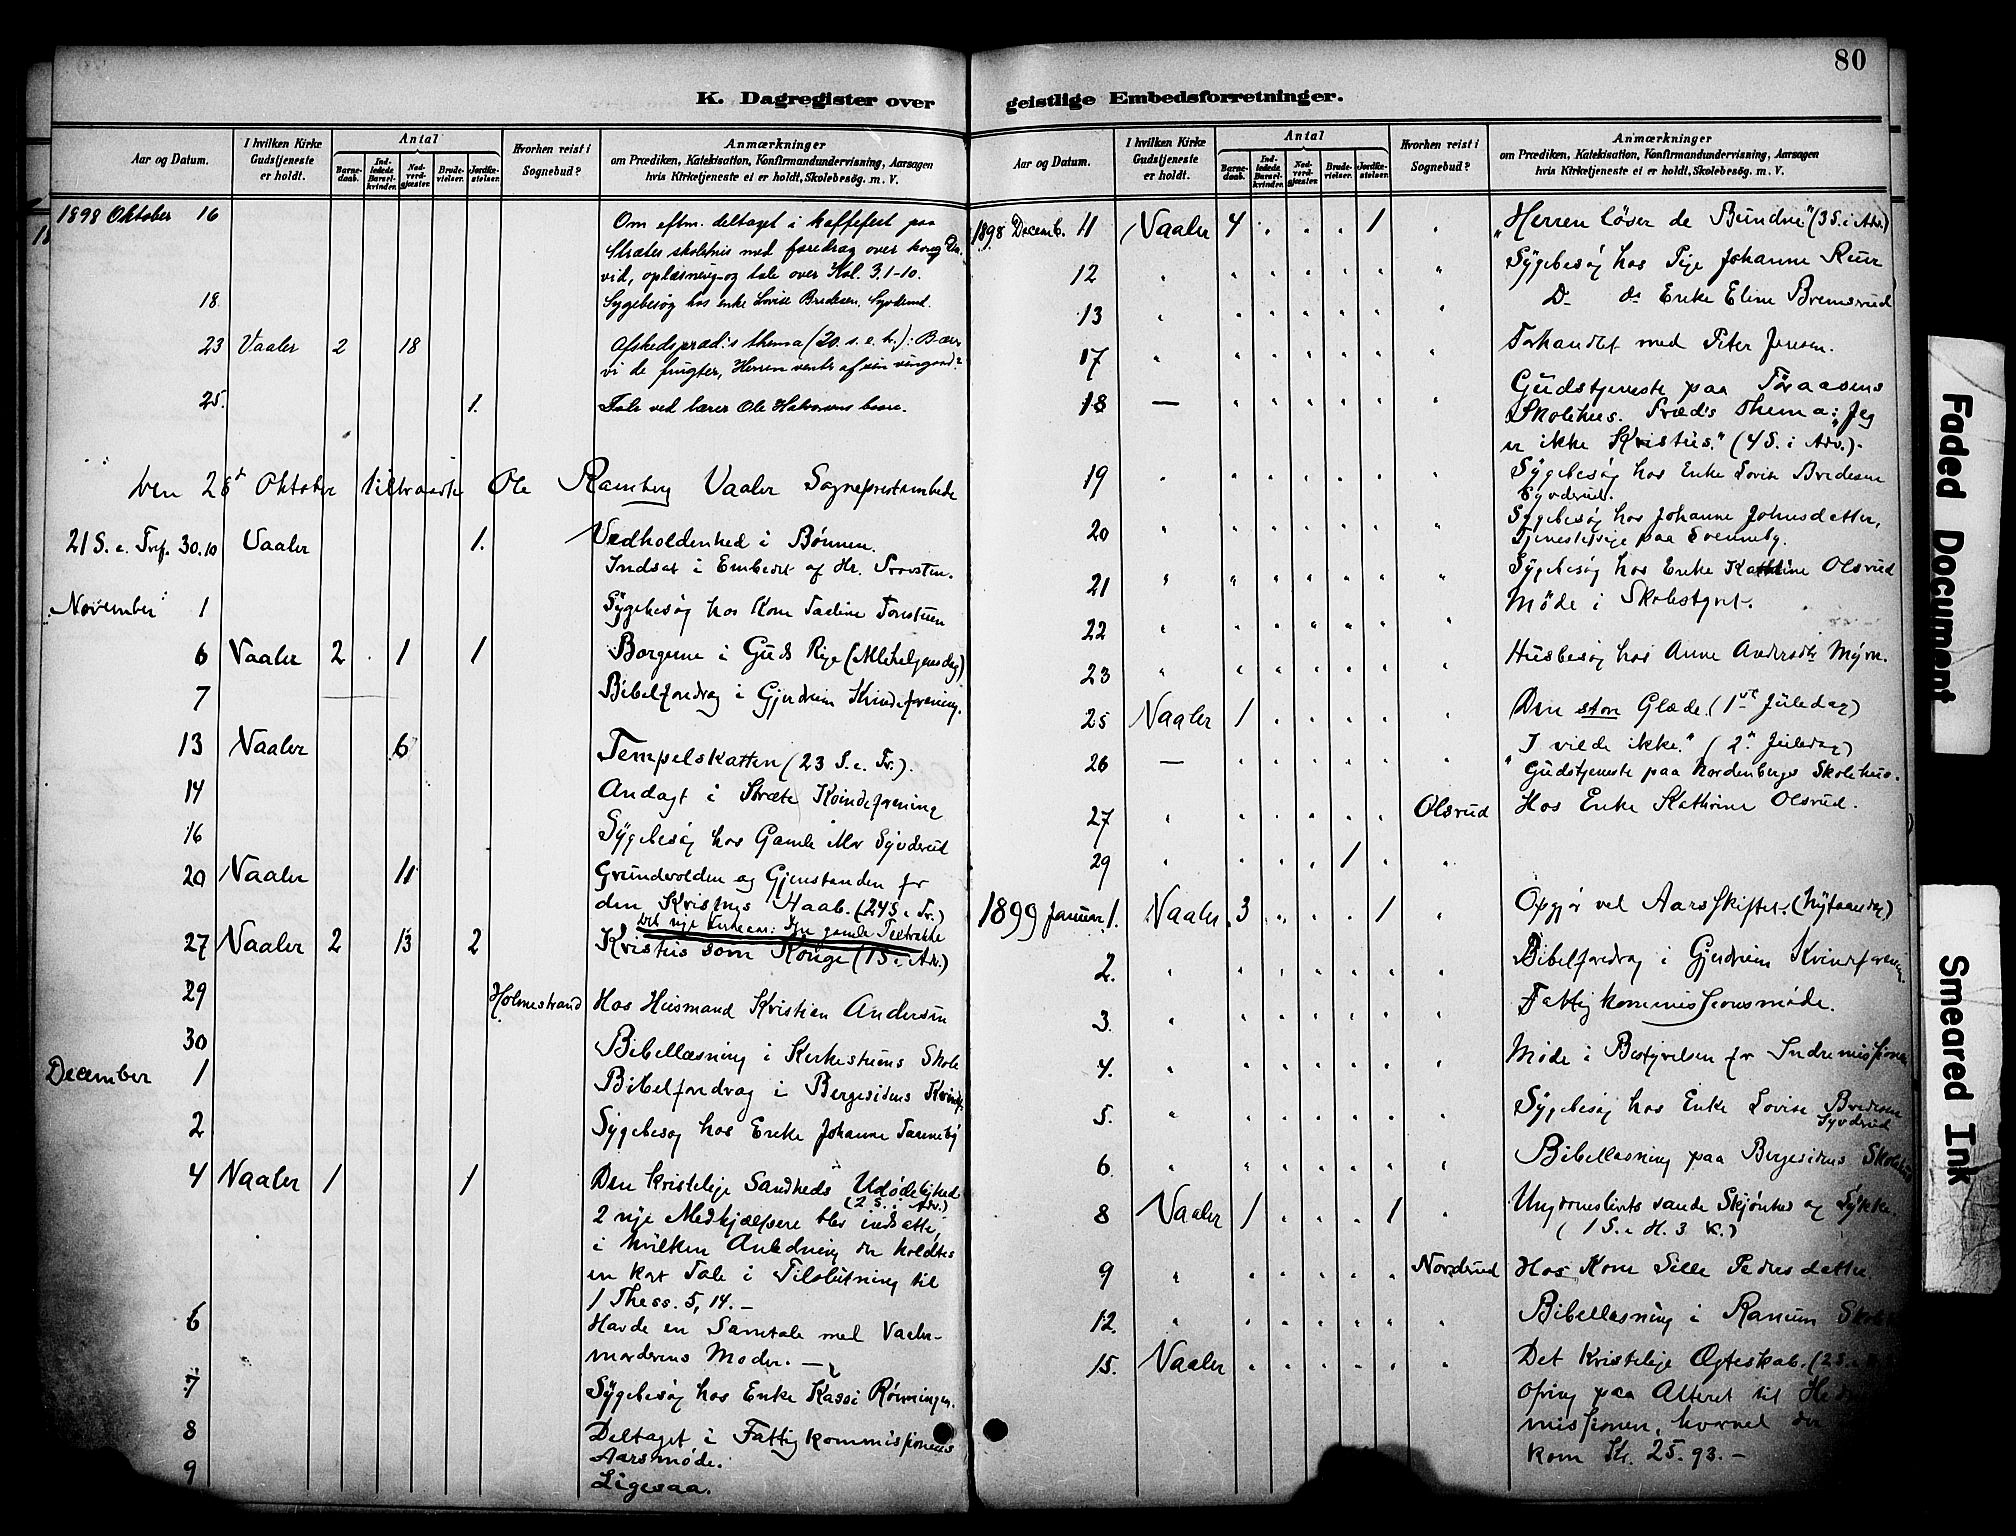 80
K. Dagregister over
geistlige Embedsforretninger.
Aar og Datum.
I hvilken Kirke Gudstjeneste er holdt.
Antal
Barnedaab.
Indledede Barselkvinder.
Nadverdgjæster.
Brudevielser.
Jordkastelser.
Hvorhen reist i Sognebud?
Anmærkninger
om Prædiken, Katekisation, Konfirmandundervisning, Aarsagen
hvis Kirketjeneste ei er holdt, Skolebesög. m. V.
1898 Oktober 16 Om eftm. deltaget i kaffefest paa
Stræter skolehus med foredrag over kong Da-
vid, oplæsning og tale over Kol. 3.1-10.
18. Sygebesøg hos enke Lovise Bredesen. Syvderud.
23 Vaaler 2 18 Afskedspræd.s thema (20. s. e. tr.): Bær
vi de frugter, Herren venter af sin vingaard?
25. 1. Tale ved lærer Ole Halvorsens baare.
Den 28de Oktober tiltraadte Ole Ramberg Vaaler Sogneprestembede
21 S. e. Tref. 30.10 Vaaler 1. Vedholdenhed i Bønnen.
Indsat i Embedet af Hr. Provsten.
November 1 Sygebesøg hos Kone
6 Vaaler 2 1 1 Borgerne i Guds Rige (Allehelgensdag)
7 Bibelforedrag i Gjerdrum Kvindeforening.
13 Vaaler 6 Tempelskatten (23 S. e. Tr.).
14 Andagt i Stræte Kvindeforening
16 Sygebesøg hos Gamle Mor Syvderud
20 Vaaler 11 Grundvolden og Gjenstanden for
den Kristnes Haab. (24 S. e. Tr.)
Det nye Kirkeaar: Den gamle Textrække
27 Vaaler 2 13 2 Kristus som Konge (1 S. i Adv.)
29 Holmestrand Hos Husmand Kristian Andersen
30 Bibellæsning i Kirkestuens Skole
December 1 Bibelforedrag i Bergesidens Kvindf.
2 Sygebesøg hos Enke Johanne
4 Vaaler 1 1 Den kristelige Sandheds Udødelighed
(2 S. i Adv.)
2 nye Medhjælpere blev indsatte,
i hvilken Anledning der holdtes
en kort Tale i Tilslutning til
1 Thess. 5, 14. —
6 Havde en Samtale med Vaaler-
morderens Moder. —
7 Sygebesøg hos Enke Kassi Rønningen.
8 Deltaget i Fattigkommissionens
Aarsmøde.
9 Ligesaa.
1898 Decemb. 11 Vaaler 4 1 „Herren løser de Bundne" (3 S. i Adv.)
12 Sygebesøg hos Pige Johanne Ruur
13 D- do Enke Eline Bremsrud
17 Forhandlet med Peter Jensen.
18 — Gudstjeneste paa Toraasens
Skolehus. Præd.s Thema: „Jeg
er ikke Kristus." (4 S. i Adv.).
19 Sygebesøg hos Enke Lovise Bredesen
Syvderud.
20 Sygebesøg hos Johanne Johnsdatter,
Tjenestepige paa Svenneby.
21 Sygebesøg hos Enke Kathrine Olsrud
22 Møde i Skolestyret.
23 Husbesøg hos Anne Andersdtr Myrv.
25 Vaaler 1 Den store Glæde. (1ste Juledag)
26 — „I vilde ikke." (2. Juledag)
Gudstjeneste paa Nordenbergs Skolehus.
27 Olsrud Hos Enke Kathrine Olsrud.
29 1
1899 Januar 1. Vaaler 3 1 Opgjør ved Aarsskiftet. (Nytaarsdag)
2. Bibelforedrag i Gjerdrum Kvindeforening
3. Fattigkommissionsmøde.
4. Møde i Bestyrelsen for Indremissionen
5. Sygebesøg hos Enke Lovise Bredesen
Syvdrud
6 Bibellæsning paa Bergesidens Skolehus
8 Vaaler 1 1 Ungdomslivets sande Skjønhed og Lykke.
(1 S. e. H. 3 K.)
9 Nordrud Hos Kone Sille Pedersdatter.
12. Bibellæsning i Ranum Skole
15. Vaaler Det kristelige Ægteskab. (2 S. e.
Ofring paa Alteret til
missionen, hvorved der
kom Kr. 25.93. —
Faded Document
Smeared Ink